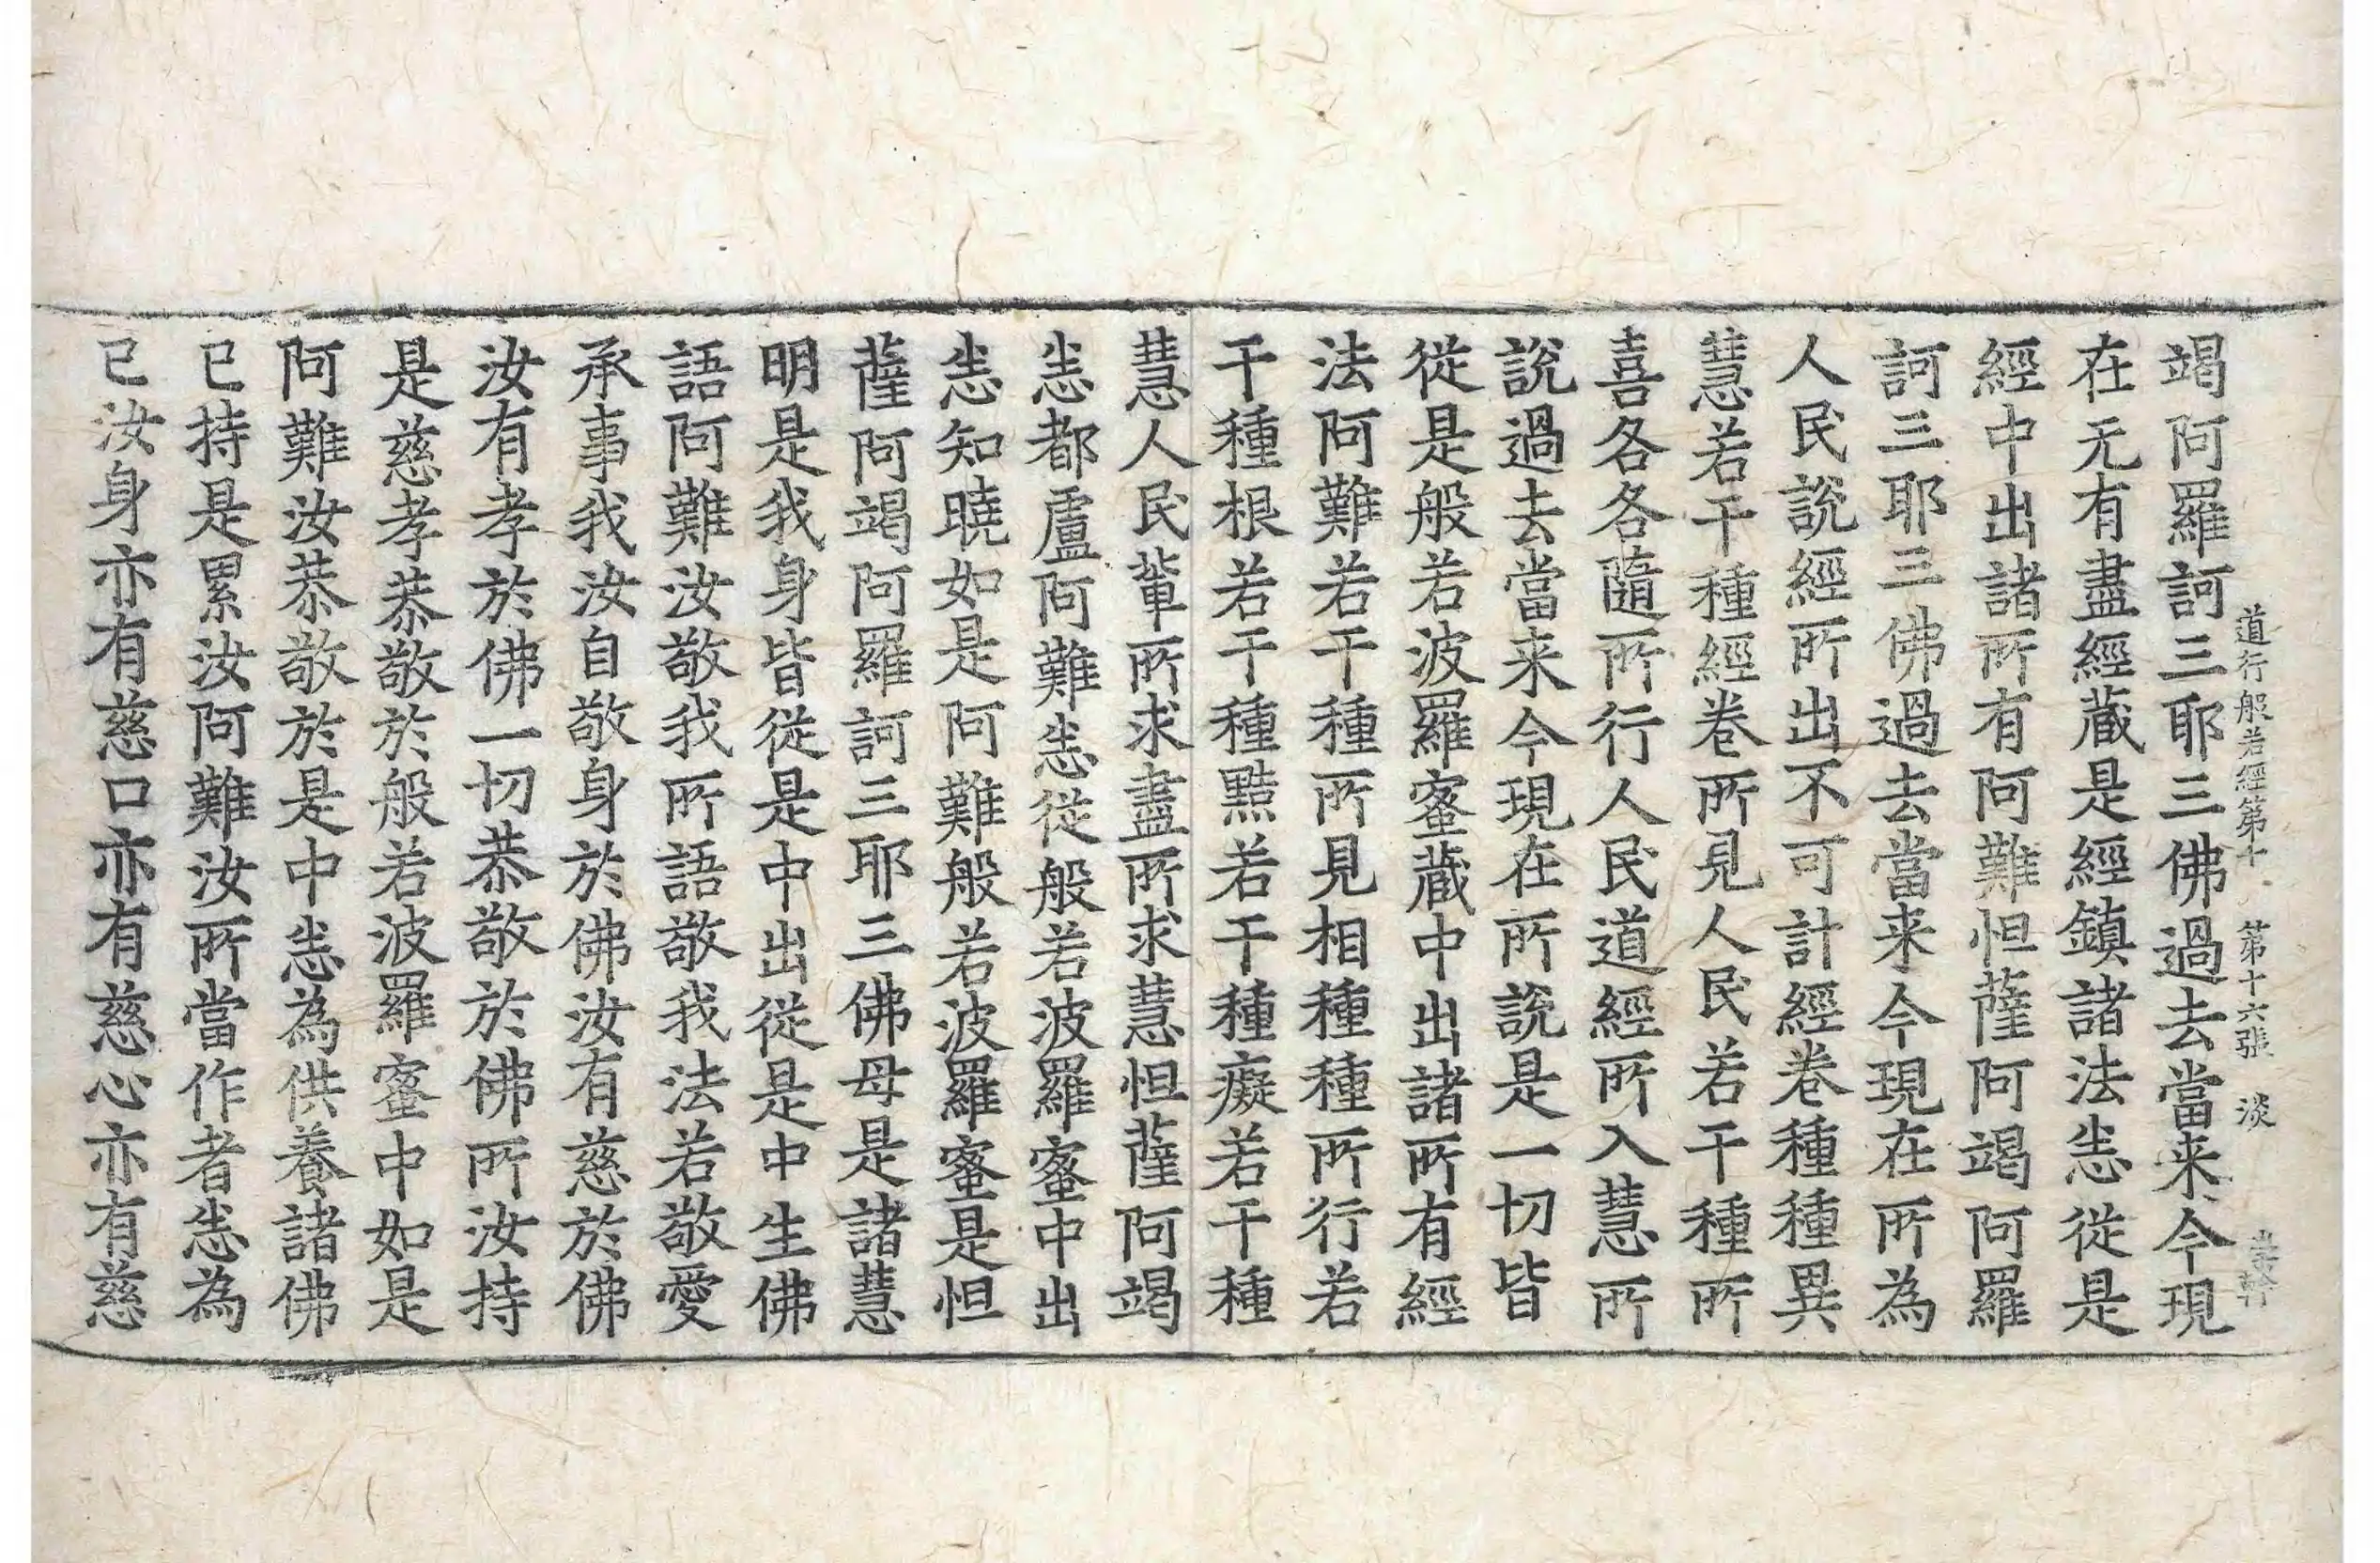 道行般若經第十 第十六張 淡
竭阿羅訶三耶三佛過去當来今現
在无有盡經蔵是經鎮諸法㤪従是
經中出諸所有阿難怛薩阿竭阿羅
訶三耶三佛過去當来今現在所為
人民說經所出不可計經卷種種異
慧若干種經卷所見人民若干種所
喜各各隨所行人民道經所入慧所
說過去當来今現在所說是一切皆
従是般若波羅蜜蔵中出諸所有經
法阿難若干種所見相種種所行若
干種根若干種黠若干種癡若干種
慧人民軰所求盡所求慧怛薩阿竭
㤪都盧阿難㤪従般若波羅蜜中出
㤪知曉如是阿難般若波羅蜜是怛
薩阿竭阿羅訶三耶三佛母是諸慧
明是我身皆従是中出従是中生佛
語阿難汝敬我所語敬我法若敬愛
承事我汝自敬身於佛汝有慈於佛
汝有孝於佛一切恭敬於佛所汝持
是慈孝恭敬於般若波羅蜜中如是
阿難汝恭敬於是中㤪為供養諸佛
已持是累汝阿難汝所當作者㤪為
已汝身亦有慈口亦有慈心亦有慈